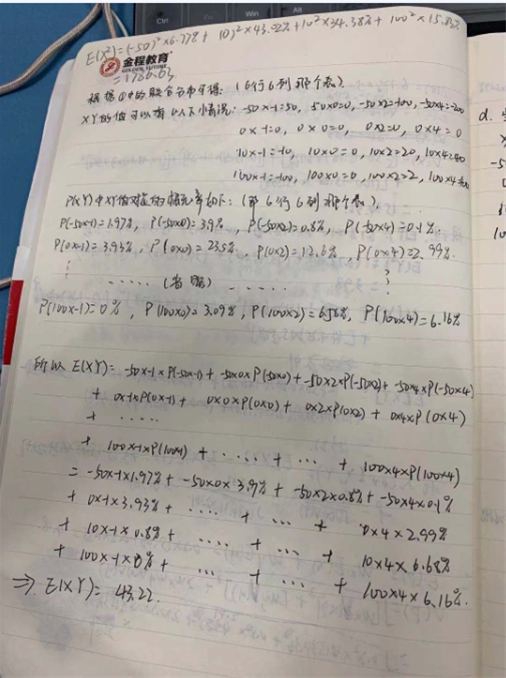 E(X²)=(-50)²×6.77%+10²×43.22%+10²×34.38%+100²×15.83%
金程教育
GOLDEN FUTURE
=1786.03
根据①中的联合分布可得:(6行6列那个表)
XY的值可以有以下情况:-50×-1=50, 50×0=0, -50×2=-100, -50×4=-200
0×-1=0, 0×0=0, 0×2=0, 0×4=0
10×-1=-10, 10×0=0, 10×2=20, 10×4=40
100×-1=-100, 100×0=0, 100×2=2, 100×4=400
P(XY)中XY值对应的概率如下:(那6行6列那个表)
P(-50×-1)=1.97%, P(-50×0)=3.9%, P(-50×2)=0.8%, P(-50×4)=0.1%
P(0×-1)=3.93%, P(0×0)=23.5%, P(0×2)=12.6%, P(0×4)=2.99%
⋮ ······(省略)······ ⋮
P(100×-1)=0%, P(100×0)=3.09%, P(100×2)=6.58%, P(100×4)=6.16%
所以 E(XY)= -50×-1×P(-50×-1)+ -50×0×P(-50×0)+ -50×2×P(-50×2)+ -50×4×P(-50×4)
+ 0×-1×P(0×-1)+ 0×0×P(0×0)+ 0×2×P(0×2)+ 0×4×P(0×4)
+ ·····
+ 100×-1×P(100×-1)+ ····· + ··· + 100×4×P(100×4)
= -50×-1×1.97%+ -50×0×3.9%+ -50×2×0.8%+ -50×4×0.1%
+ 0×-1×3.93%+ ···· + ··· + 0×4×2.99%
+ 10×-1×0.8%+ ····· + ··· + 10×4×6.68%
+ 100×-1×0%+ ··· + ··· + 100×4×6.16%
⇒ E(XY)= 43.22.
d.